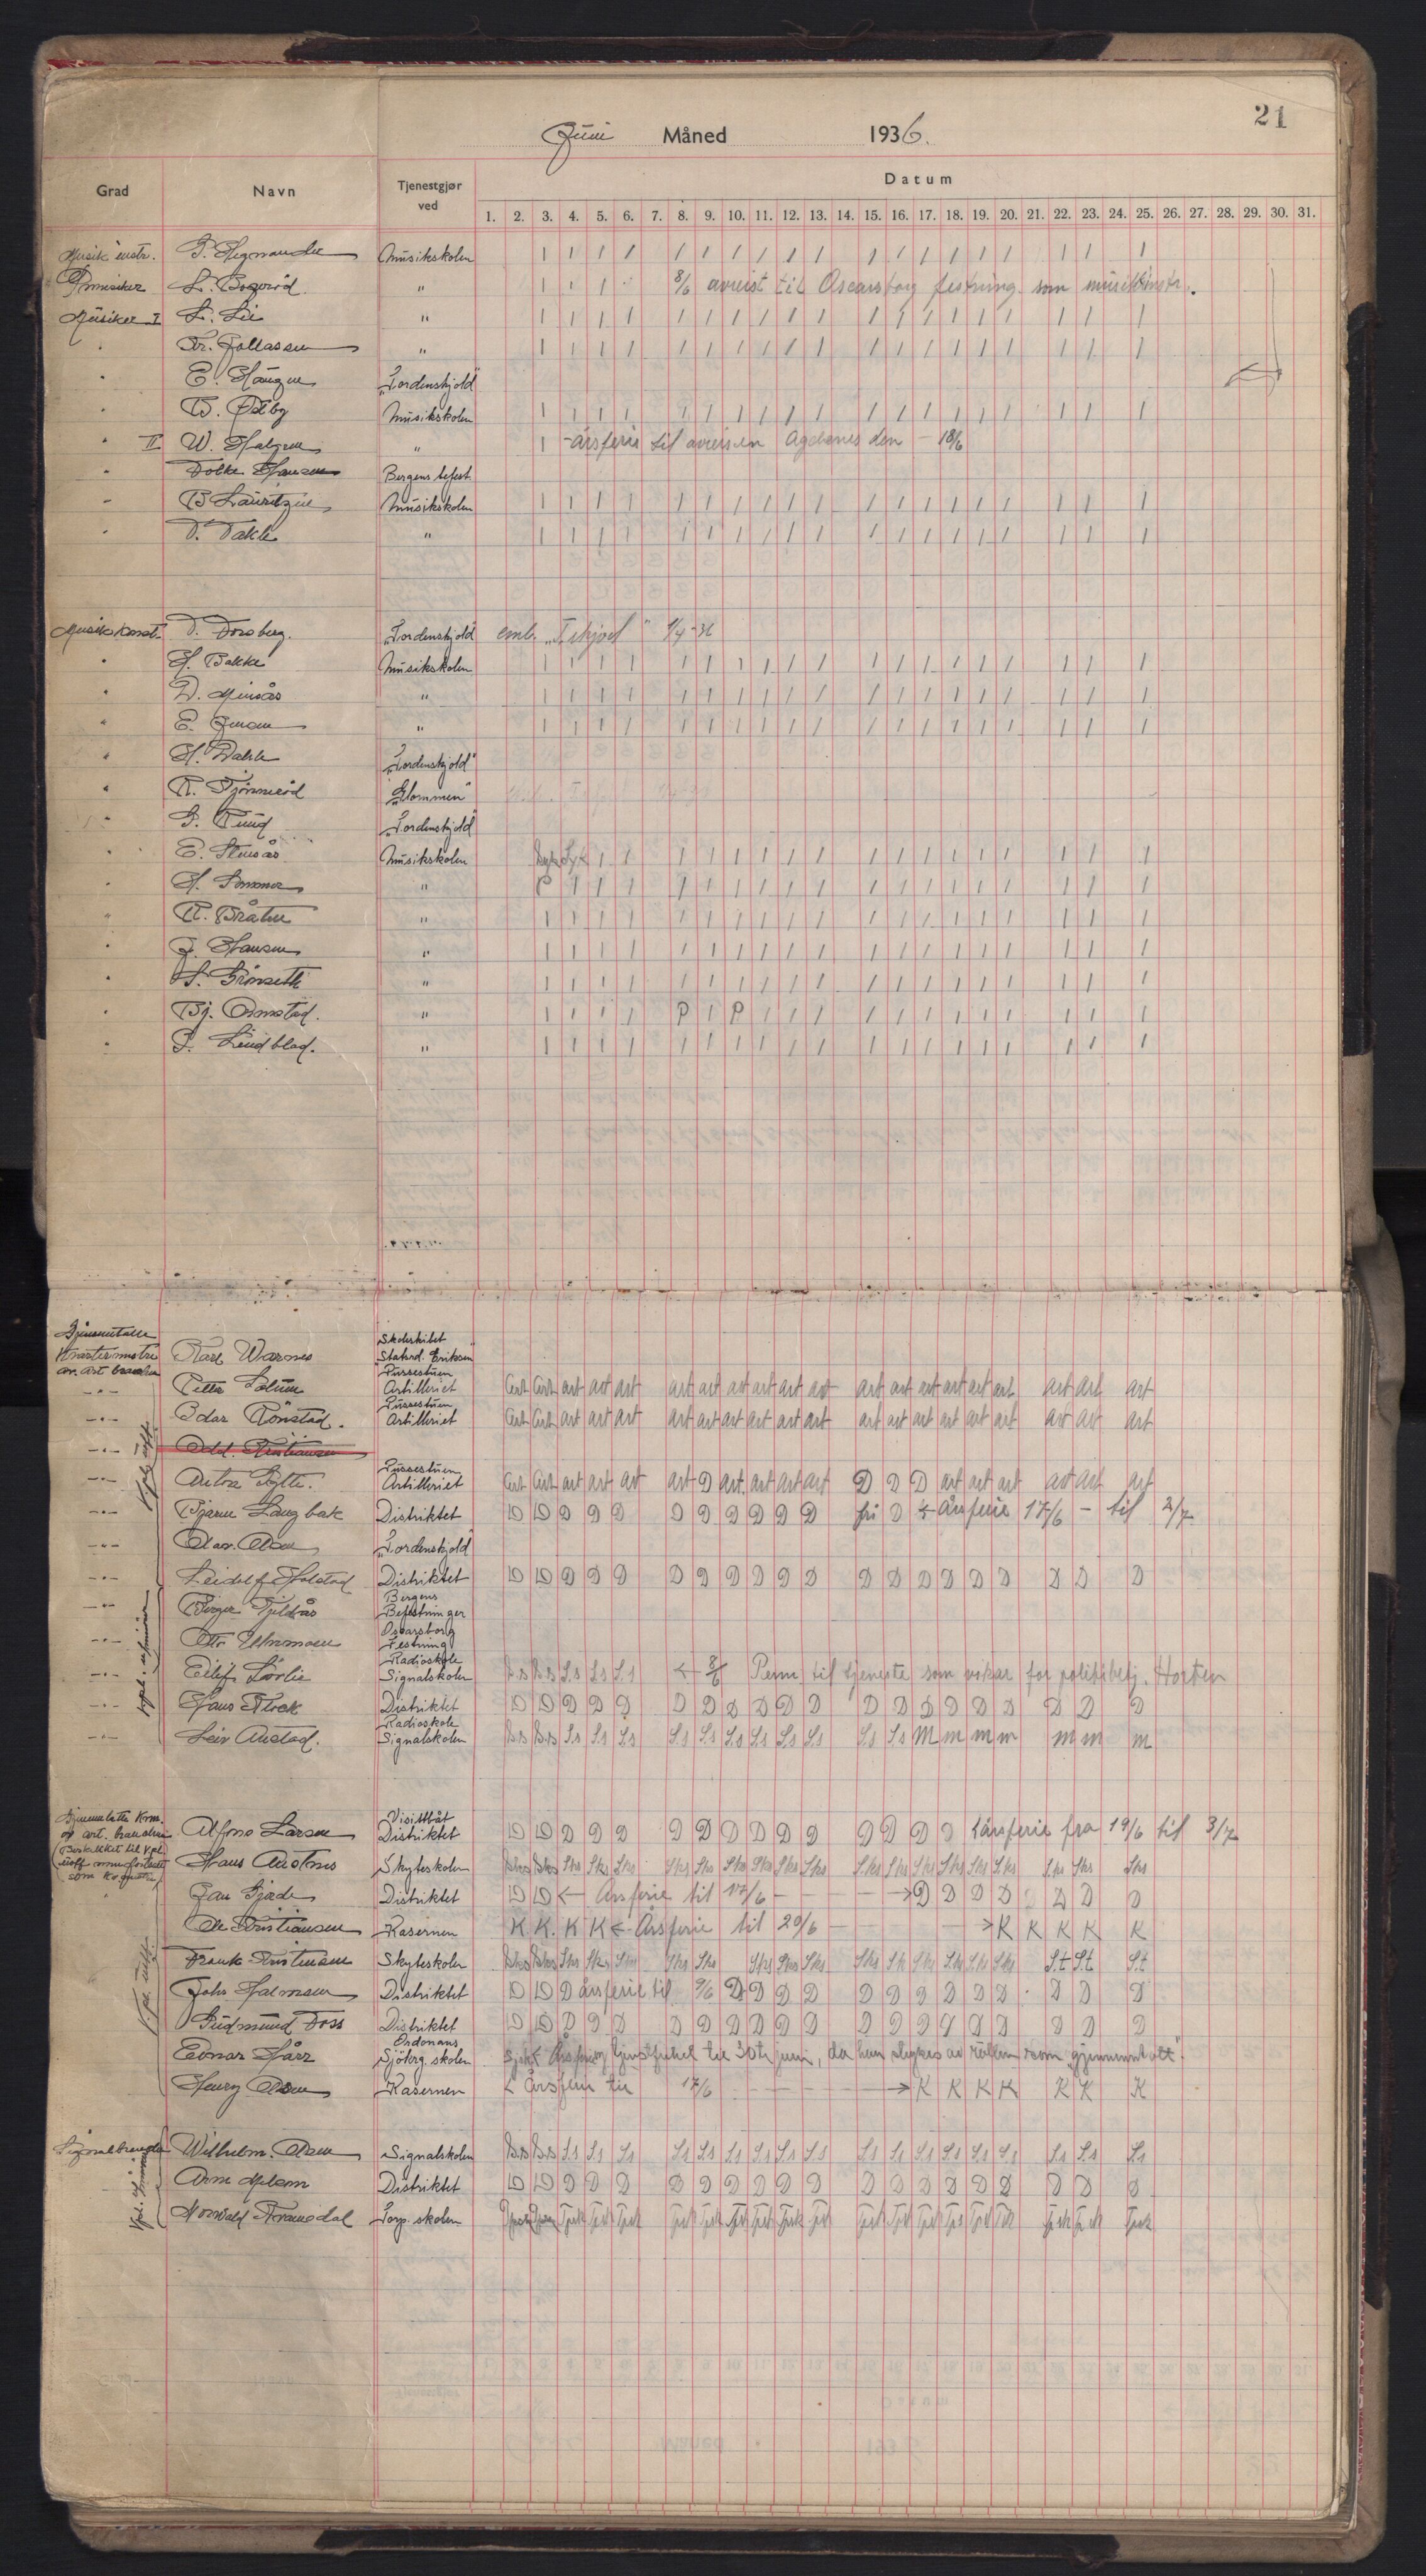 21
Juni Måned 1936.
Grad Navn Tjenestgjør ved Datum
1. 2. 3. 4. 5. 6. 7. 8. 9. 10. 11. 12. 13. 14. 15. 16. 17. 18. 19. 20. 21. 22. 23. 24. 25. 26. 27. 28. 29. 30. 31.
Musik instr. Musikskolen 1 1 1 1 1 1 1 1 1 1 1 1 1 1 1 1 1 1 1
L. " 1 1 1 8/6 avreist til Oscarsborg festning som musikkinstr.
Musiker I L. Lie " 1 1 1 1 1 1 1 1 1 1 1 1 1 1 1 1 1 1 1
" Kr. Follassen " 1 1 1 1 1 1 1 1 1 1 1 1 1 1 1 1 1 1 1
" E. Haugen "Tordenskjold"
" Musikskolen 1 1 1 1 1 1 1 1 1 1 1 1 1 1 1 1 1 1 1
" II W. " 1 - årsferie til avreisen Agdenes den - 18/6
" Hansen Bergens befest.
" B. Lauritzen Musikskolen 1 1 1 1 1 1 1 1 1 1 1 1 1 1 1 1 1 1 1
" T. Takle " 1 1 1 1 1 1 1 1 1 1 1 1 1 1 1 1 1 1 1
Musik konst. T. Forsberg. "Tordenskjold" emb. "T.skjold" 1/4-36
" H. Bakke Musikskolen 1 1 1 1 1 1 1 1 1 1 1 1 1 1 1 1 1 1 1
" D. Minsås " 1 1 1 1 1 1 1 1 1 1 1 1 1 1 1 1 1 1 1
" E. Jensen " 1 1 1 1 1 1 1 1 1 1 1 1 1 1 1 1 1 1 1
" H. Dahle "Tordenskjold"
" R. Tjønnerød "Glommen"
" G. Ruud "Tordenskjold"
" E. Stensås Musikskolen Syk Syk 1 1 1 1 1 1 1 1 1 1 1 1 1 1 1 1 1
" H. " P 1 1 1 1 1 1 1 1 1 1 1 1 1 1 1 1 1 1
" R. Bråten " 1 1 1 1 1 1 1 1 1 1 1 1 1 1 1 1 1 1 1
" J. Hansen " 1 1 1 1 1 1 1 1 1 1 1 1 1 1 1 1 1 1 1
" S. Grönseth " 1 1 1 1 1 1 1 1 1 1 1 1 1 1 1 1 1 1 1
" Bj. Ormstad. " 1 1 1 1 P 1 P 1 1 1 1 1 1 1 1 1 1 1 1
" G. Lindblad. " 1 1 1 1 1 1 1 1 1 1 1 1 1 1 1 1 1 1 1
Gjennemtatte
Kvartermestre
av. art branchen
Karl Warnes Skoleskibet "Statsrd. Eriksen"
-"- Petter Solum Pussestuen Artilleriet Art Art art art art art art art art art art art art art art art art art art art
-"- Bodar Rönstad. Pussestuen Artilleriet Art Art art art art art art art art art art art art art art art art art art art
-"- Odd. Kristiansen
-"- Anton Pussestuen Artilleriet Art Art art art art art D art. art art art D D D art art art art art art
-"- Bjarne Langbak Distriktet D D D D D D D D D D D fri D Årsferie 17/6 - til 2/7
-"- Olav. Olsen "Tordenskjold"
-"- Leidolf Holstad Distriktet D D D D D D D D D D D D D D D D D D D D
-"- Birger Fjeldås Bergens Befestninger
-"- Otto Oscarsborg Festning
-"- Eilif Lörlie Radioskole Signalskolen B.s B.s S.s S.s S.s ← 8/6 Perm til tjeneste som for politibetj. Horten
-"- Hans Flock Distriktet D D D D D D D D D D D D D D D D D D D D
-"- Leiv Anstad. Radioskole Signalskolen B.s B.s S.s S.s S.s S.s S.s S.s S.s S.s S.s S.s S.s M m m m m m m
Gjennemtatte Kvm.
av art. branchen
Alfons Larsen Visittbåt Distriktet D D D D D D D D D D D D D D D årsferie fra 19/6 til 3/7
Hans Skyteskolen Sks Sks Sks Sks Sks Sks Sks Sks Sks Sks Sks Sks Sks Sks Sks Sks Sks Sks Sks Sks
Jan Gjerde Distriktet D D ← Årsferie til 17/6 - - - → D D D D D D D
Ole Kristiansen Kasernen K K. K K ← Årsferie til 20/6 - → K K K K K
Frank Kristiansen Skyteskolen Sks Sks Sks Sks Sks Sks Sks Sks Sks Sks Sks Sk Sks Sks Sks Sks S.t S.t S.t
Johs Halvorsen Distriktet D D D årsferie til 9/6 D D D D D D D D D D D D D
Gudmund Foss Distriktet D D D D D D D D D D D D D D D D D D D D
Einar Ordonans Sjötorg. skolen Årsferie og tjenstfrihet til 30te juni, da han sløyfes av rullen som "gjennemtatt".
Henry Olsen Kasernen < Årsferie til 17/6 - - - → K K K K K K K
Signalbranchen Wilhelm. Olsen Signalskolen B.s B.s S.s S.s S.s S.s S.s S.s S.s S.s S.s S.s S.s S.s S.s S.s S.s S.s S.s S.s
Arne Distriktet D D D D D D D D D D D D D D D D D D D D
Torp. skolen Tpsk Tpsk Tpsk Tpsk Tpsk Tpsk Tpsk Tpsk Tpsk Tpsk Tpsk Tpsk Tpsk Tpsk Tpsk Tpsk Tpsk Tpsk Tpsk Tpsk